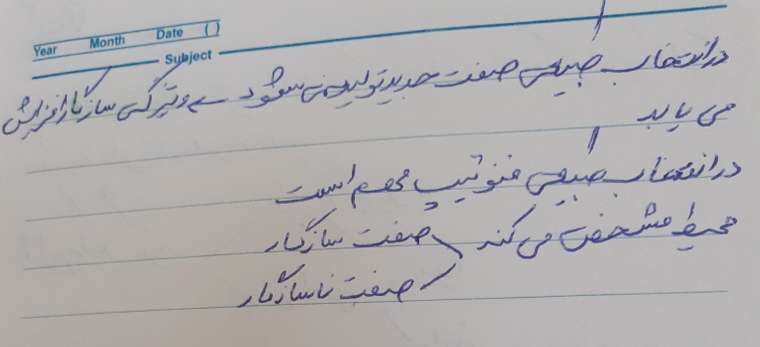 Year Month Date ( )
Subject
در انتخاب طبیعی صفت جدید تولید نمی شود → ویژگی سازگار افزایش
می یابد
در انتخاب طبیعی فنوتیپ مهم است
محیط مشخص می کند صفت سازگار
صفت ناسازگار